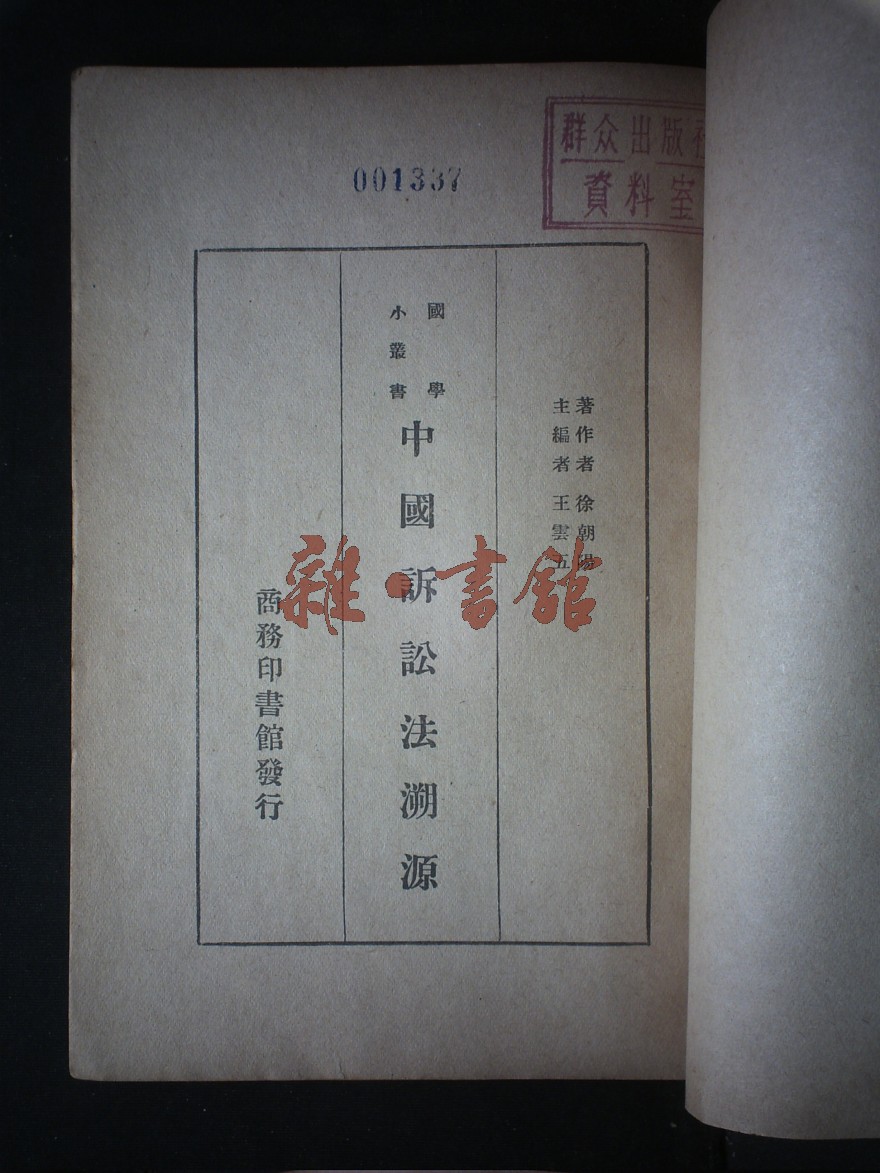 001337
群众出版社
資料室
著作者 徐朝陽
主編者 王雲五
國學
小叢書
中國訴訟法溯源
商務印書館發行
雜·書館